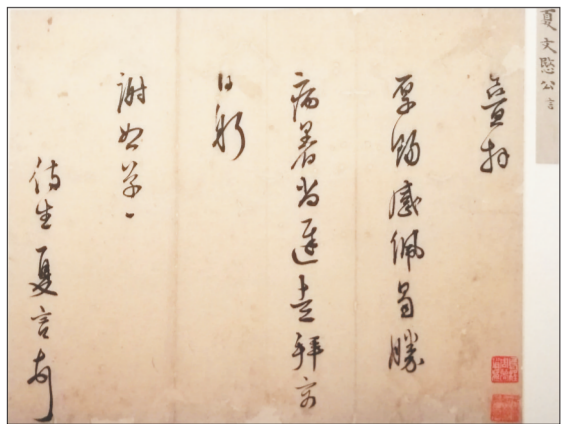 夏文愍公言
拜
厚賜感佩曷勝
病暑尚遲走拜容
日躬
謝草
侍生夏言